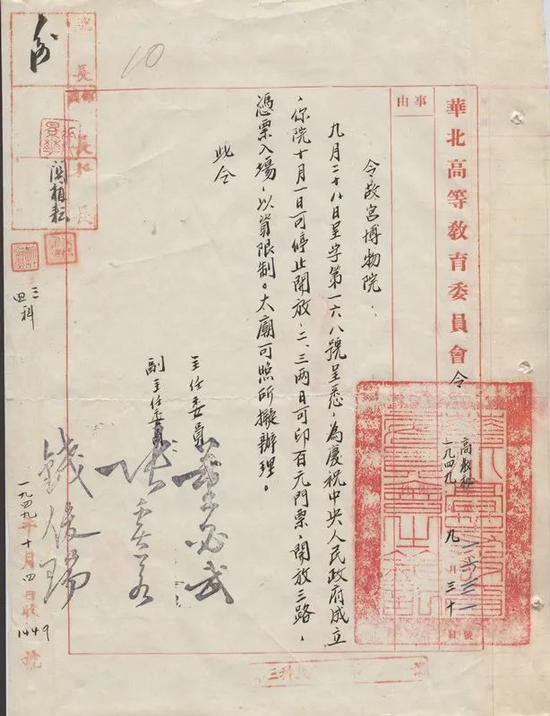 華北高等教育委員會令
事由
高教秘
一九四九 九月三十日
號
令故宮博物院：
九月二十八日呈字第一六八號呈悉，為慶祝中央人民政府成立
，你院十月一日可停止開放，二、三兩日可印百元門票，開放三路，
憑票入場，以資限制。太廟可照所擬辦理。
此令
主任委員 董必武
副主任委員 張奚若
錢俊瑞
一九四九年十月四日收
1449 號
10
院長
三科